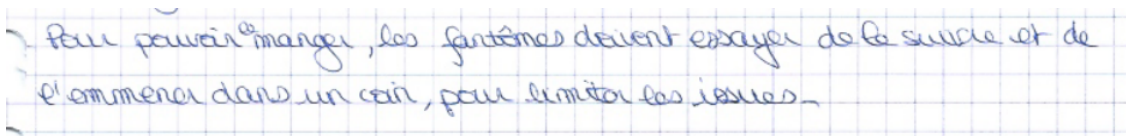 Pour pouvoir le manger, les fantômes doivent essayer de le suivre et de
l'emmener dans un coin, pour limiter les issues.